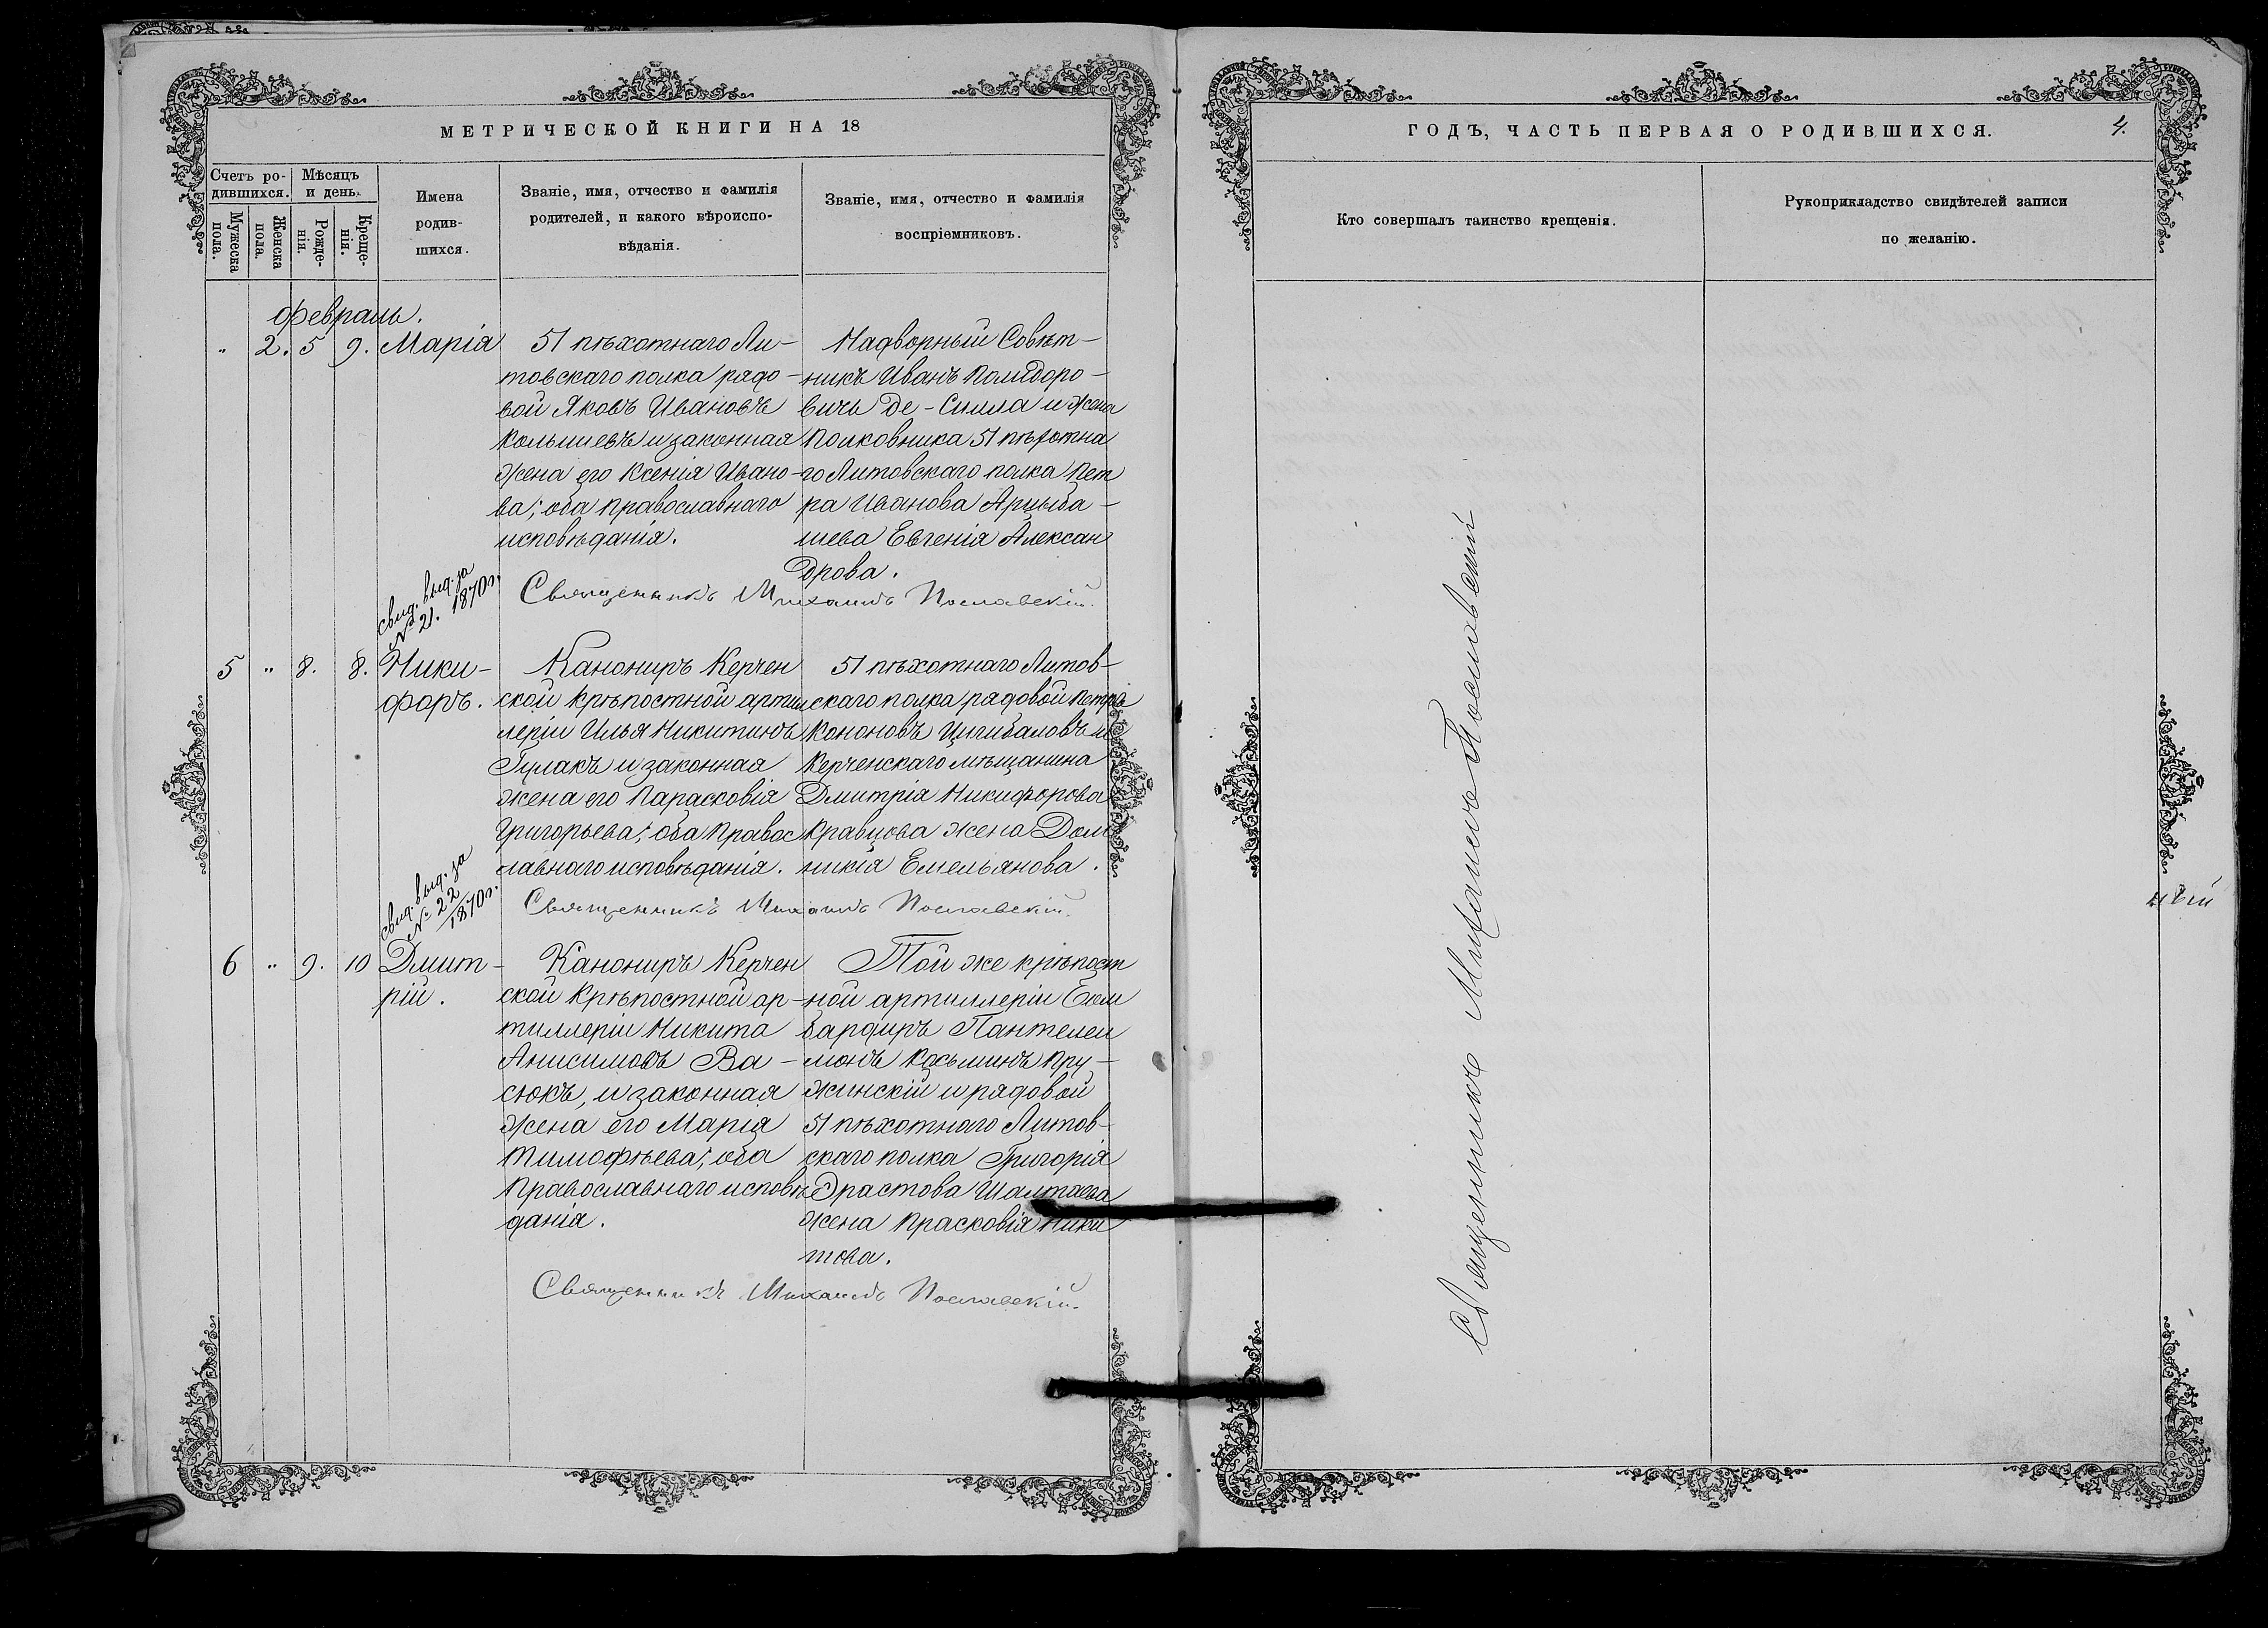 МЕТРИЧЕСКОЙ КНИГИ НА 18
Счетъ ро-
дившихся.
Мѣсяцъ
и день.
Мужска
пола.
Женска
пола.
Рожде-
нія.
Креще-
нія.
Имена
родив-
шихся.
Званіе, имя, отчество и фамилія
родителей, и какого вѣроиспо-
вѣданія.
Званіе, имя, отчество и фамилія
воспріемниковъ.
февраль.
" 2. 5 9. Марія
51 пѣхотнаго Ли-
товскаго полка рядо-
вой Яковъ Ивановъ
и законная
жена его Ксенія Ивано-
ва; оба православнаго
исповѣданія.
Надворный Совѣт-
никъ Иванъ Полидоро-
вичъ де-Силла и жена
Полковника 51 пѣхотна
го Литовскаго полка Пет
ра Иванова Арцыба-
шева Евгенія Алексан
дрова.
Священникъ Михаилъ Пославскій.
свид. выд. за
№ 21. 1870 г.
5 " 8. 8. Ники-
форъ.
Канониръ Керчен
ской крѣпостной артил
леріи Илья Никитинъ
Гулакъ и законная
жена его Парасковія
Григорьева; оба правос
лавнаго исповѣданія.
51 пѣхотнаго Литов-
скаго полка рядовой Петръ
Кононовъ Цыгибаловъ и
Керченскаго мѣщанина
Дмитрія Никифорова
Кравцова жена Дом
никія Емельянова.
Священникъ Михаилъ Пославскій.
свид. выд. за
№ 22
1870 г.
6 " 9. 10 Дмит-
рій.
Канониръ Керчен
ской крѣпостной ар-
тиллеріи Никита
Анисимовъ Ва-
сюкъ, и законная
жена его Марія
Тимофѣева; оба
православнаго исповѣ
данія.
Той же крѣпост
ной артиллеріи Бом
бардиръ Пантелеи
монъ Косьминъ Пру-
жинскій и рядовой
51 пѣхотнаго Литов-
скаго полка Григорія
Эрастова Шалтаева
жена Прасковія Ники
това.
Священникъ Михаилъ Пославскій.
ГОДЪ, ЧАСТЬ ПЕРВАЯ О РОДИВШИХСЯ.
4.
Кто совершалъ таинство крещенія.
Рукоприкладство свидѣтелей записи
по желанію.
Священникъ Михаилъ Пославскій